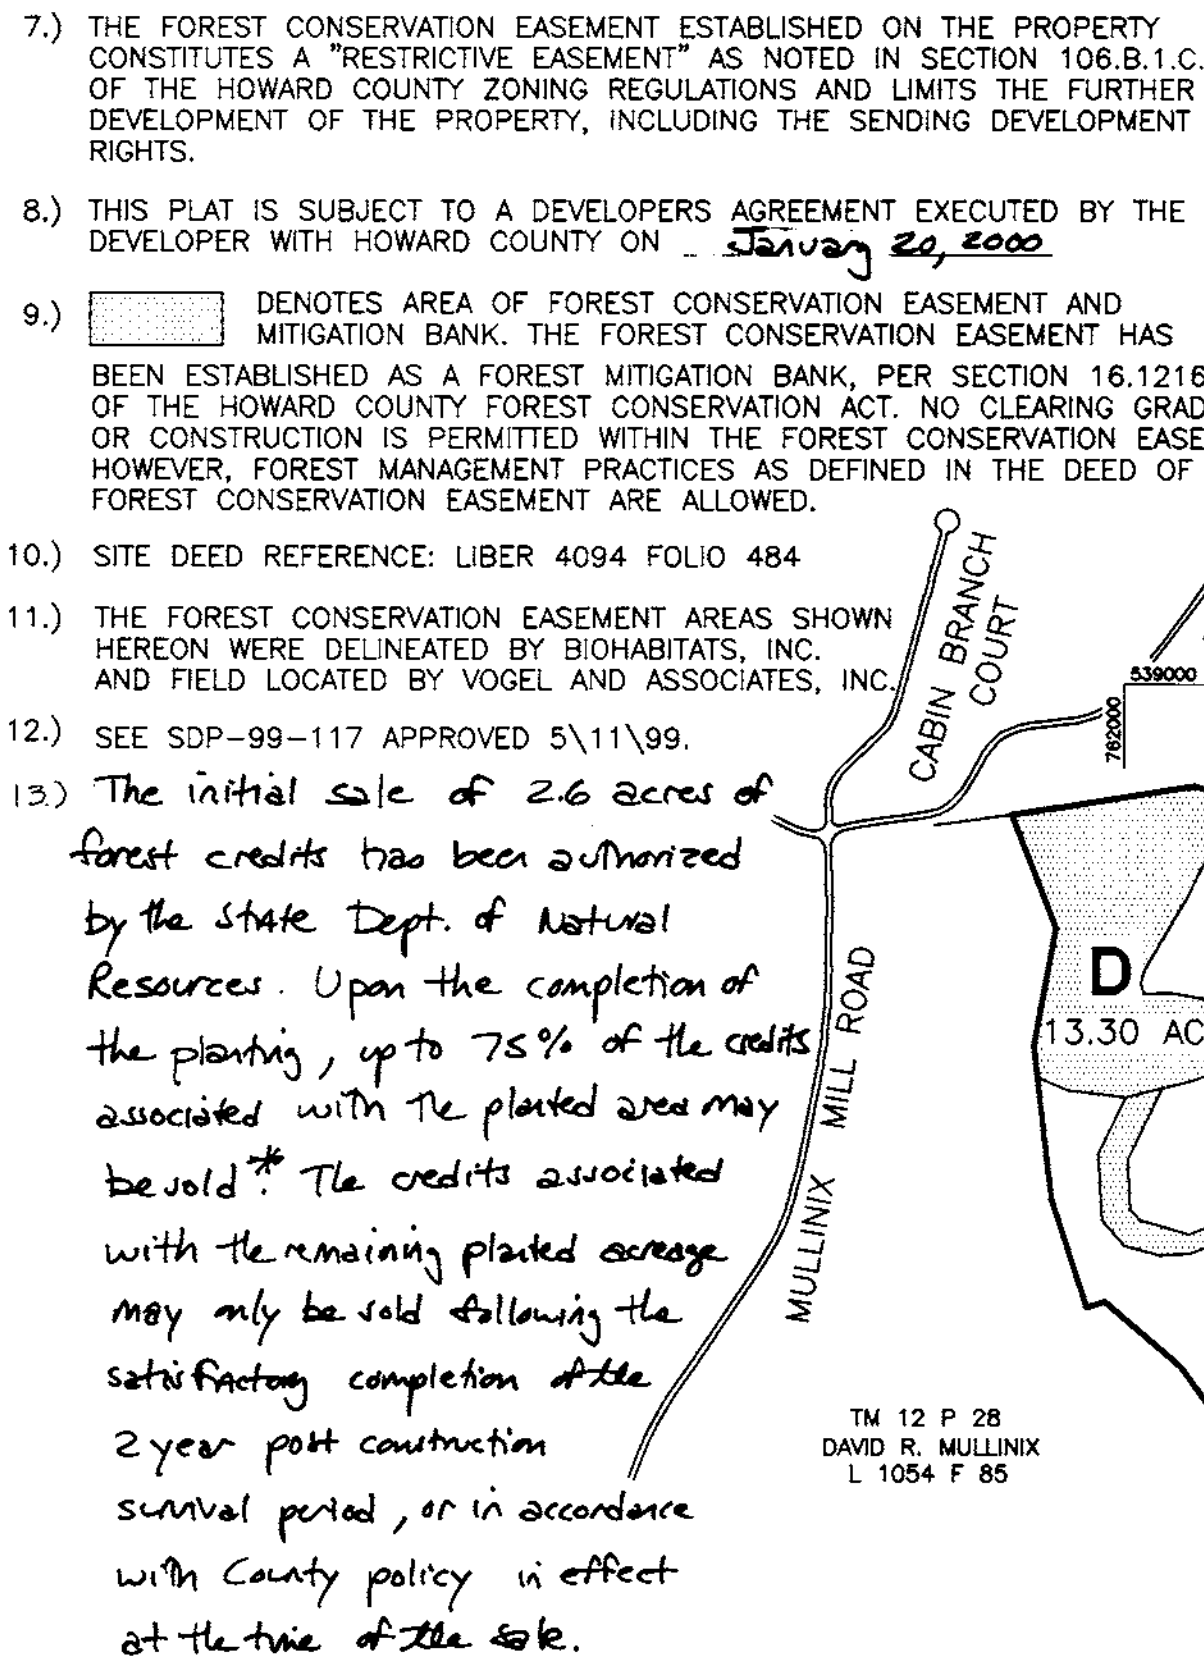 7.) THE FOREST CONSERVATION EASEMENT ESTABLISHED ON THE PROPERTY
CONSTITUTES A "RESTRICTIVE EASEMENT" AS NOTED IN SECTION 106.B.1.C.
OF THE HOWARD COUNTY ZONING REGULATIONS AND LIMITS THE FURTHER
DEVELOPMENT OF THE PROPERTY, INCLUDING THE SENDING DEVELOPMENT
RIGHTS.
8.) THIS PLAT IS SUBJECT TO A DEVELOPERS AGREEMENT EXECUTED BY THE
DEVELOPER WITH HOWARD COUNTY ON January 20, 2000
9.) DENOTES AREA OF FOREST CONSERVATION EASEMENT AND
MITIGATION BANK. THE FOREST CONSERVATION EASEMENT HAS
BEEN ESTABLISHED AS A FOREST MITIGATION BANK, PER SECTION 16.1216
OF THE HOWARD COUNTY FOREST CONSERVATION ACT. NO CLEARING GRAD
OR CONSTRUCTION IS PERMITTED WITHIN THE FOREST CONSERVATION EASE
HOWEVER, FOREST MANAGEMENT PRACTICES AS DEFINED IN THE DEED OF
FOREST CONSERVATION EASEMENT ARE ALLOWED.
10.) SITE DEED REFERENCE: LIBER 4094 FOLIO 484
11.) THE FOREST CONSERVATION EASEMENT AREAS SHOWN
HEREON WERE DELINEATED BY BIOHABITATS, INC.
AND FIELD LOCATED BY VOGEL AND ASSOCIATES, INC.
12.) SEE SDP-99-117 APPROVED 5\11\99.
13.) The initial sale of 2.6 acres of
forest credits has been authorized
by the State Dept. of Natural
Resources. Upon the completion of
the planting, up to 75% of the credits
associated with the planted area may
be sold*. The credits associated
with the remaining planted acreage
may only be sold following the
satisfactory completion of the
2 year post construction
survival period, or in accordance
with County policy in effect
at the time of the sale.
CABIN BRANCH
COURT
539000
762000
D
13.30 AC
MULLINIX MILL ROAD
TM 12 P 28
DAVID R. MULLINIX
L 1054 F 85